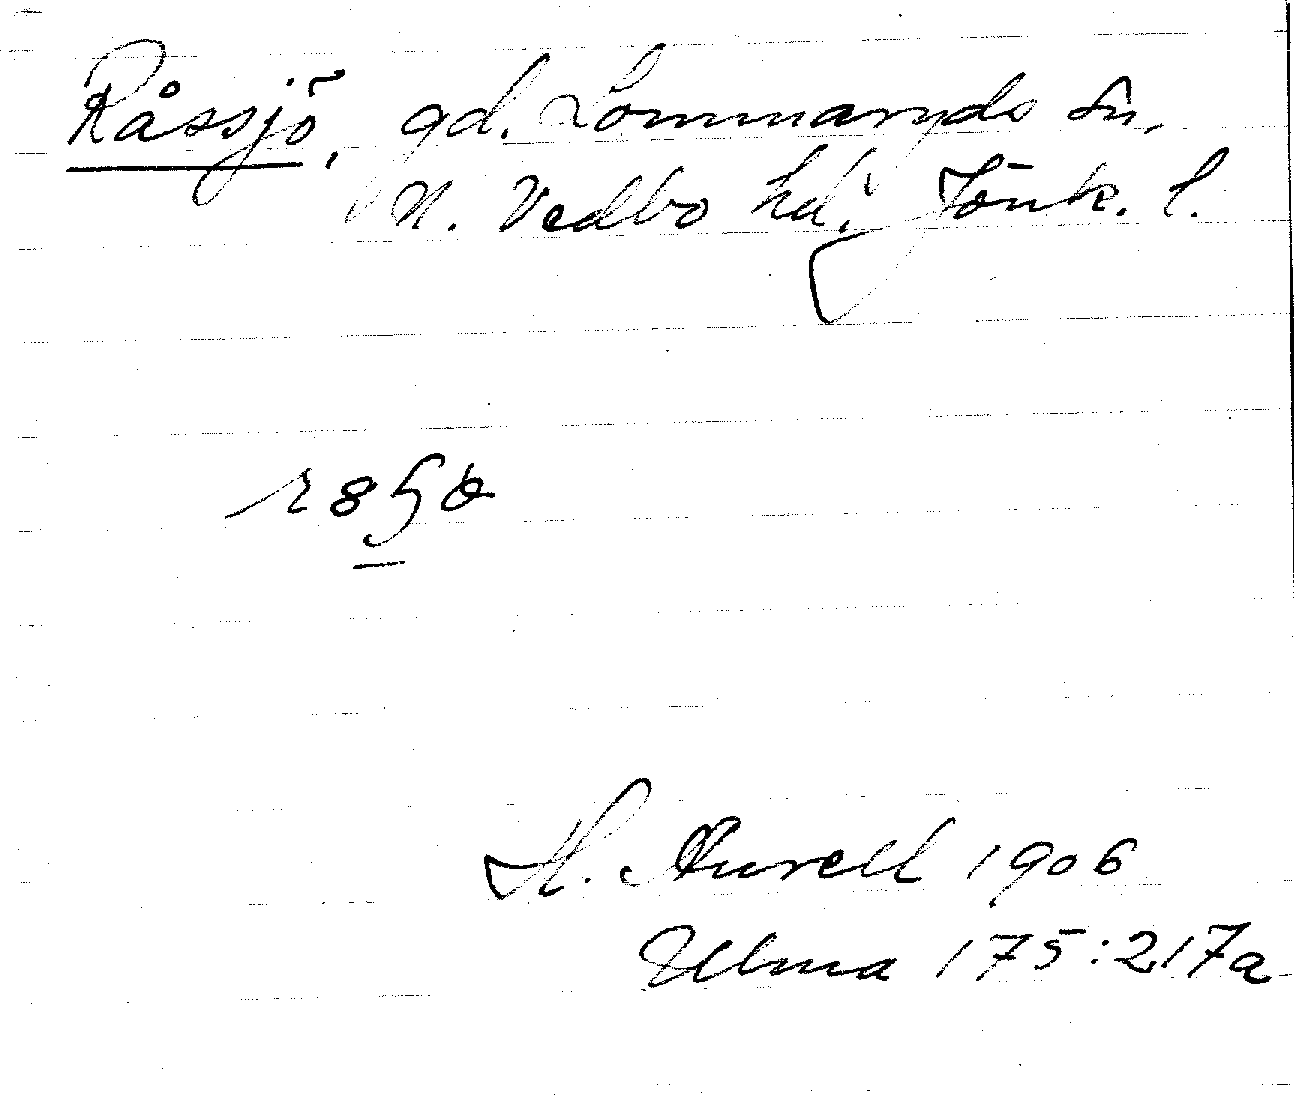 Råssjö, gd. Lommaryds sn,
N. Vedbo hd, Jönk. l.
M. Aurell 1906
Ulma 175:217a